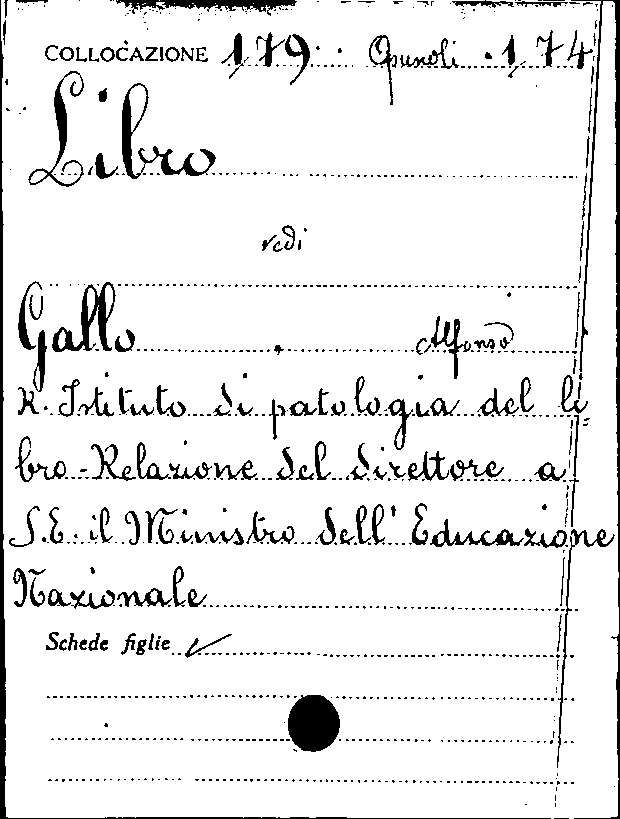 COLLOCAZIONE 179 Opuscoli 174
Libro
vedi
Gallo, Alfonso
R. Istituto di patologia del li=
bro - Relazione del direttore a
S.E. il Ministro dell' Educazione
Nazionale
Schede figlie